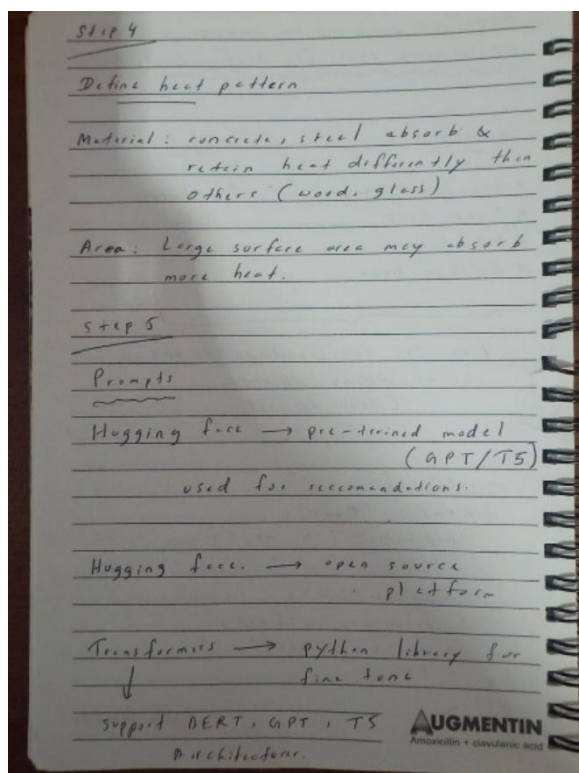 Step 4
Define heat pattern
Material : concrete, steel absorb &
retain heat differently than
others (wood, glass)
Area : Large surface area may absorb
more heat.
step 5
Prompts
Hugging face → pre-trained model
(GPT/T5)
used for reccomendations.
Hugging face. → open source
platform
Transformers → python library for
fine tune
↓
support BERT, GPT, T5
Architecture.
AUGMENTIN
Amoxicillin + clavulanic acid